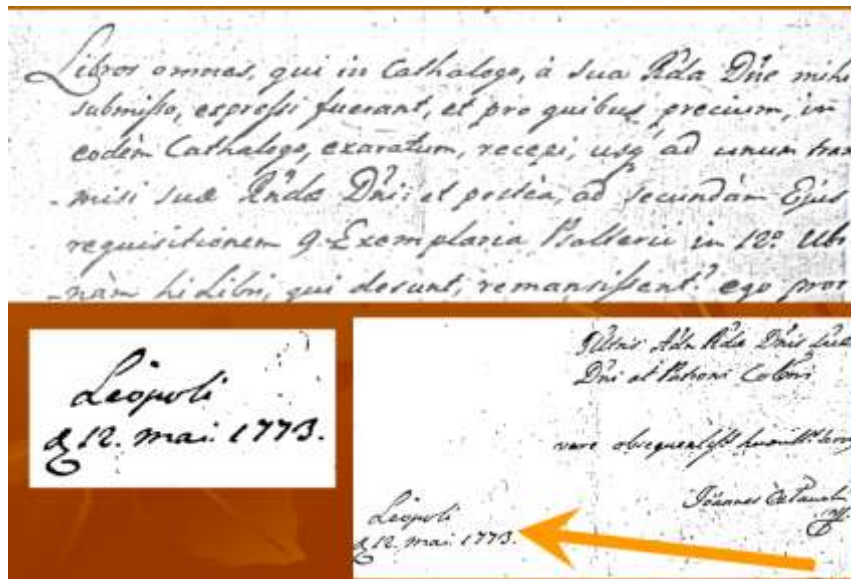 Libros omnes, qui in Cathalogo, à sua Rda Dne mihi
submisso, expressi fuerant, et pro quibus precium, in
eodem Cathalogo, exaratum, recepi, usq ad unum tran
-misi suæ Rndæ Dni: et posteà, ad secundam Ejus
requisitionem 9. Exemplaria Psalterii in 12º Ubi
-nàm hi Libri, qui desunt, remansissent? ego pror
Leopoli
d 12. mai. 1773.
Adm Rdæ Dnis suæ
Dni et Patroni Colmi
vere
Leopoli
d 12. mai. 1773.
Joannes